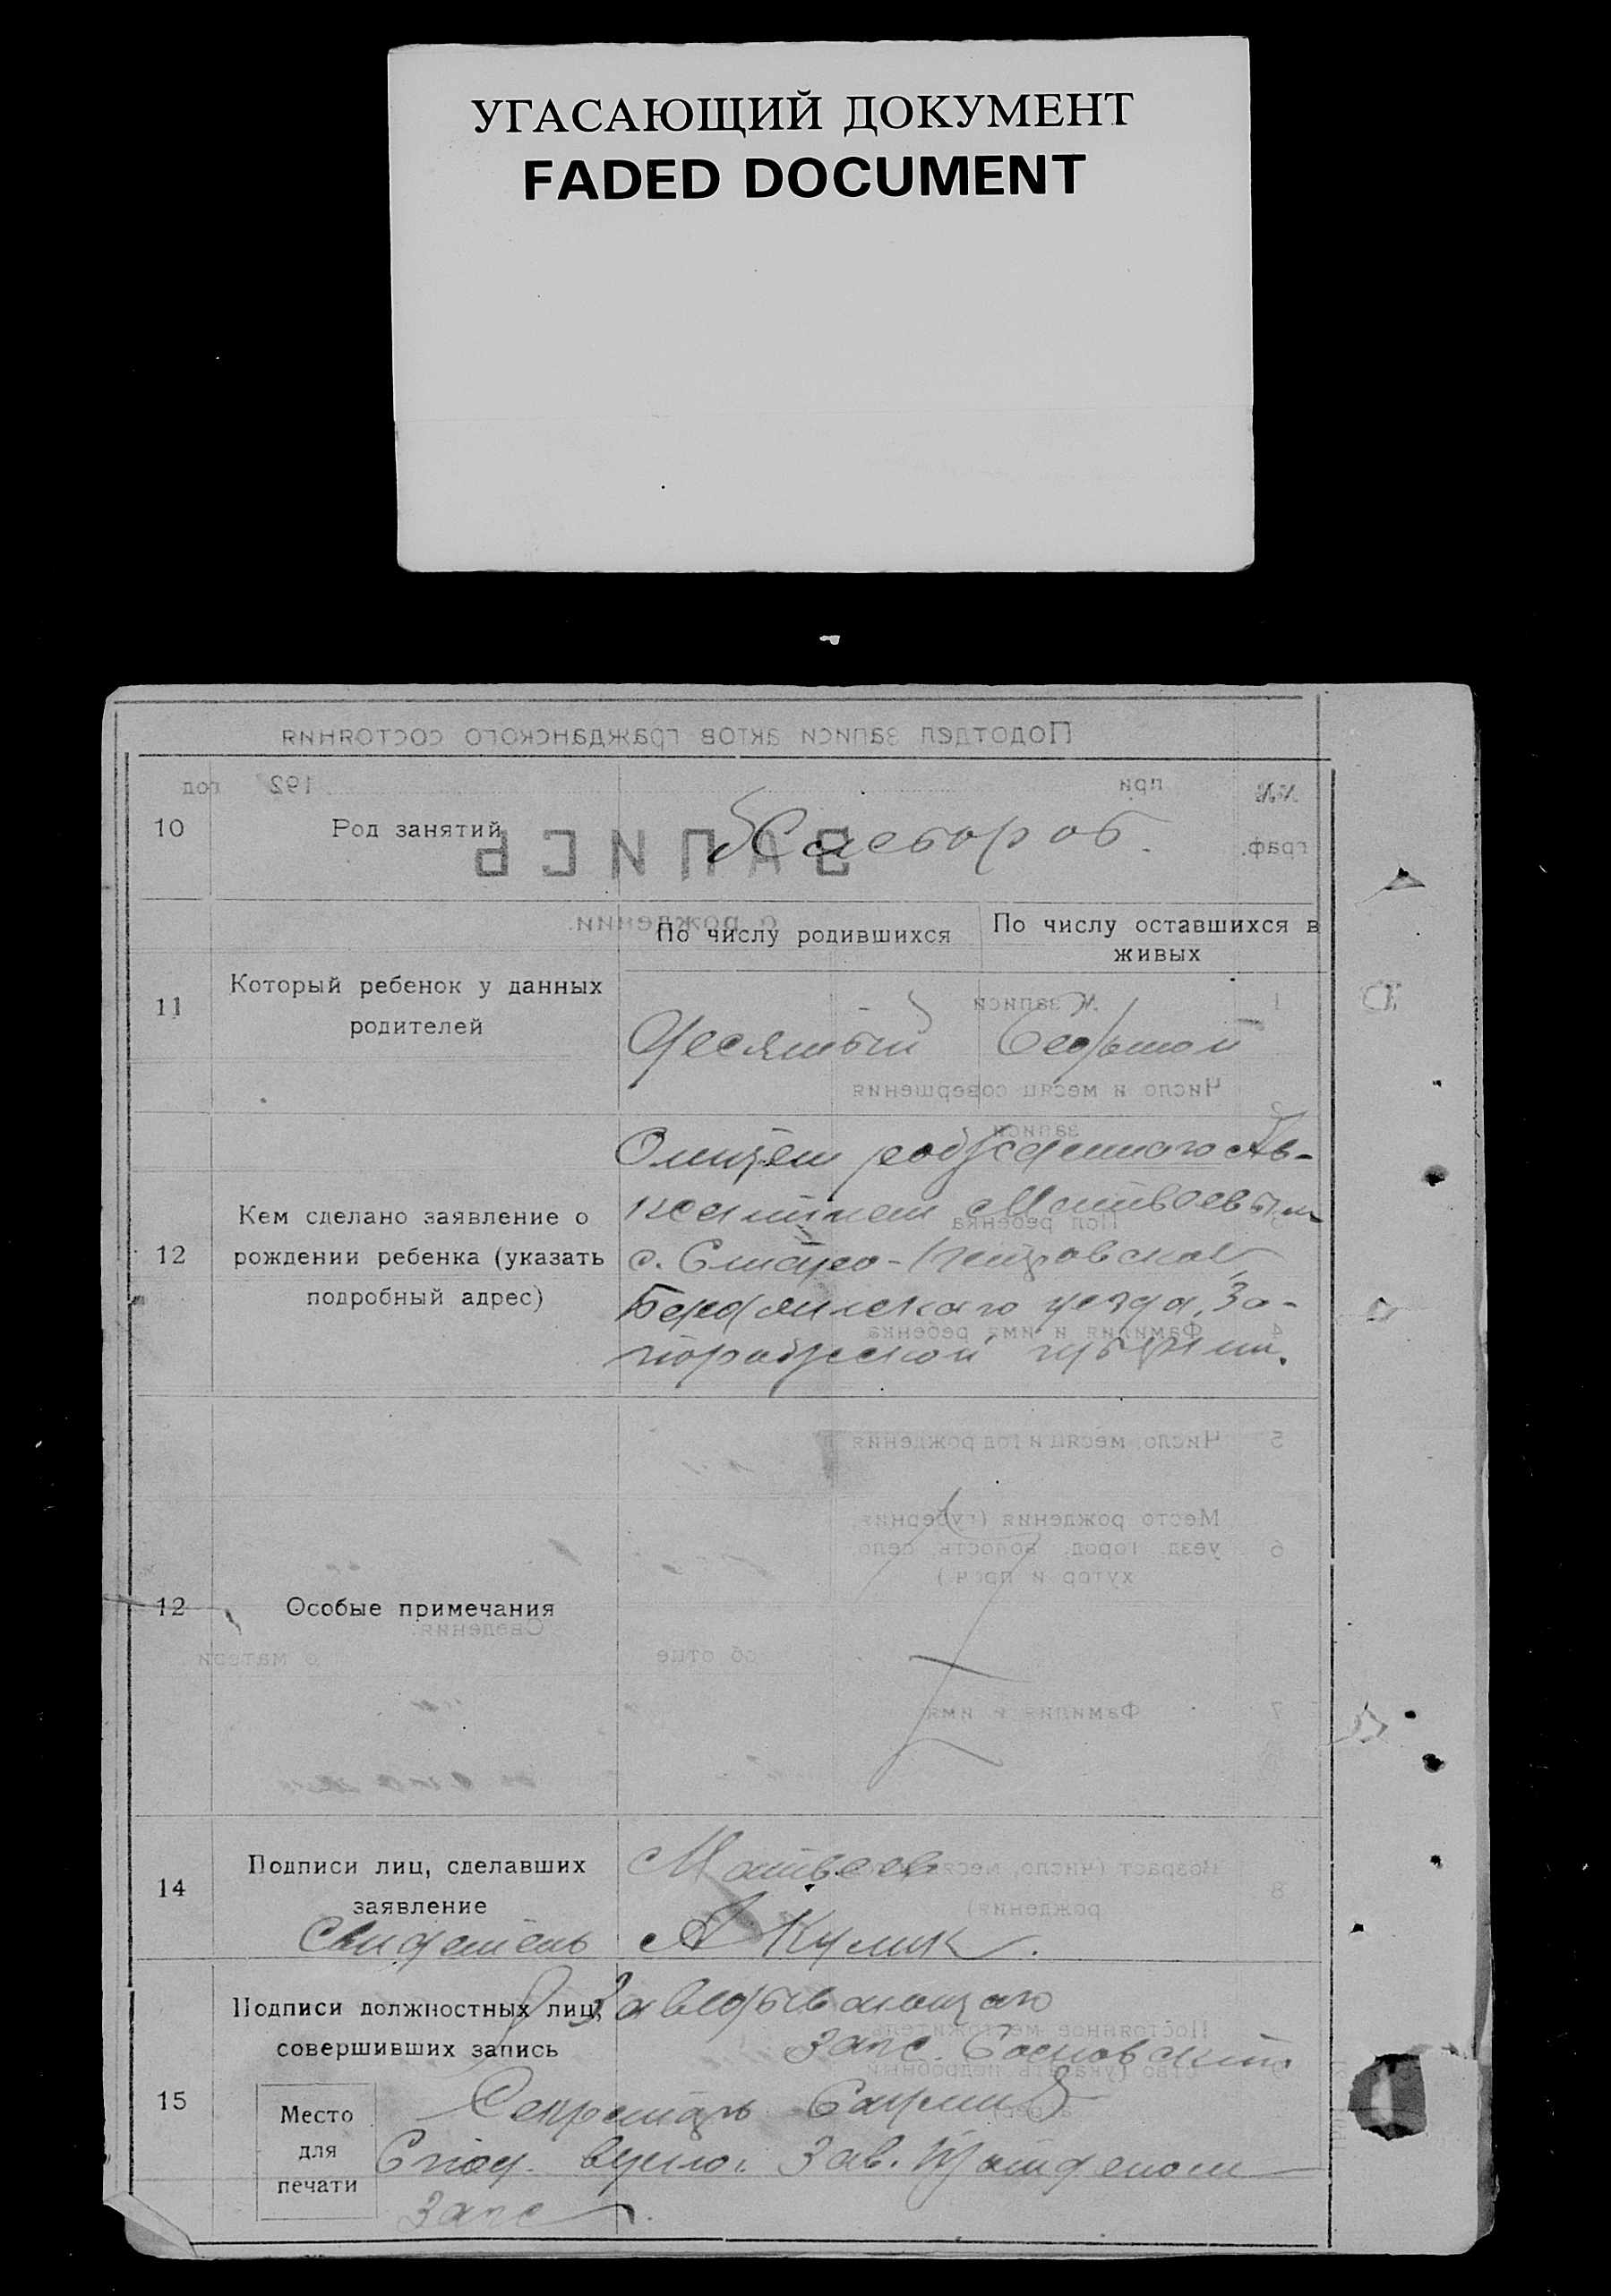 УГАСАЮЩИЙ ДОКУМЕНТ
FADED DOCUMENT
10
Род занятий
Хлебороб.
По числу родившихся
По числу оставшихся в
живых
11
Который ребенок у данных
родителей
Десятый
Седьмой
12
Кем сделано заявление о
рождении ребенка (указать
подробный адрес)
Отцем рожденного Ав-
ксентием Матвоевым
с. Старо-Петровской
Бердянского уезда, За-
порожской губернии.
12
Особые примечания
14
Подписи лиц, сделавших
заявление
Матвеев
Свидетель А Кулик.
15
Подписи должностных лиц,
совершивших запись
Заведывающаго
загс.
Секретарь
Место
для
печати
Зав.
Загс